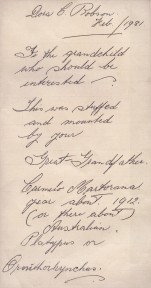 Dora C. Robson
Feb./1981
To the grandchild
who should be
interested
This was stuffed
and mounted
by your
Great Grandfather.
Carmelo Martorana
year about 1912.
(or there about)
Australian
Platypus or
Ornithorhynchus.